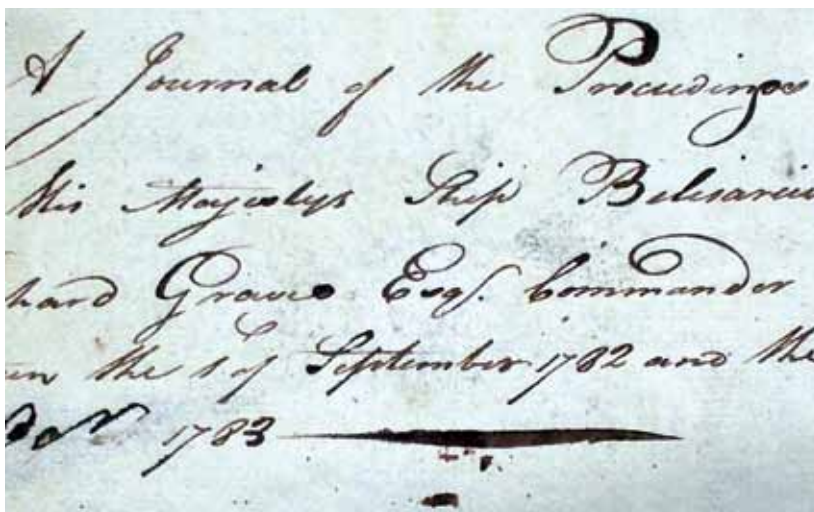 A Journal of the Proceedings
His Majestys Ship Belisarius
hard Graves Esqr. Commander
en the 1st of September 1782 and the
1783